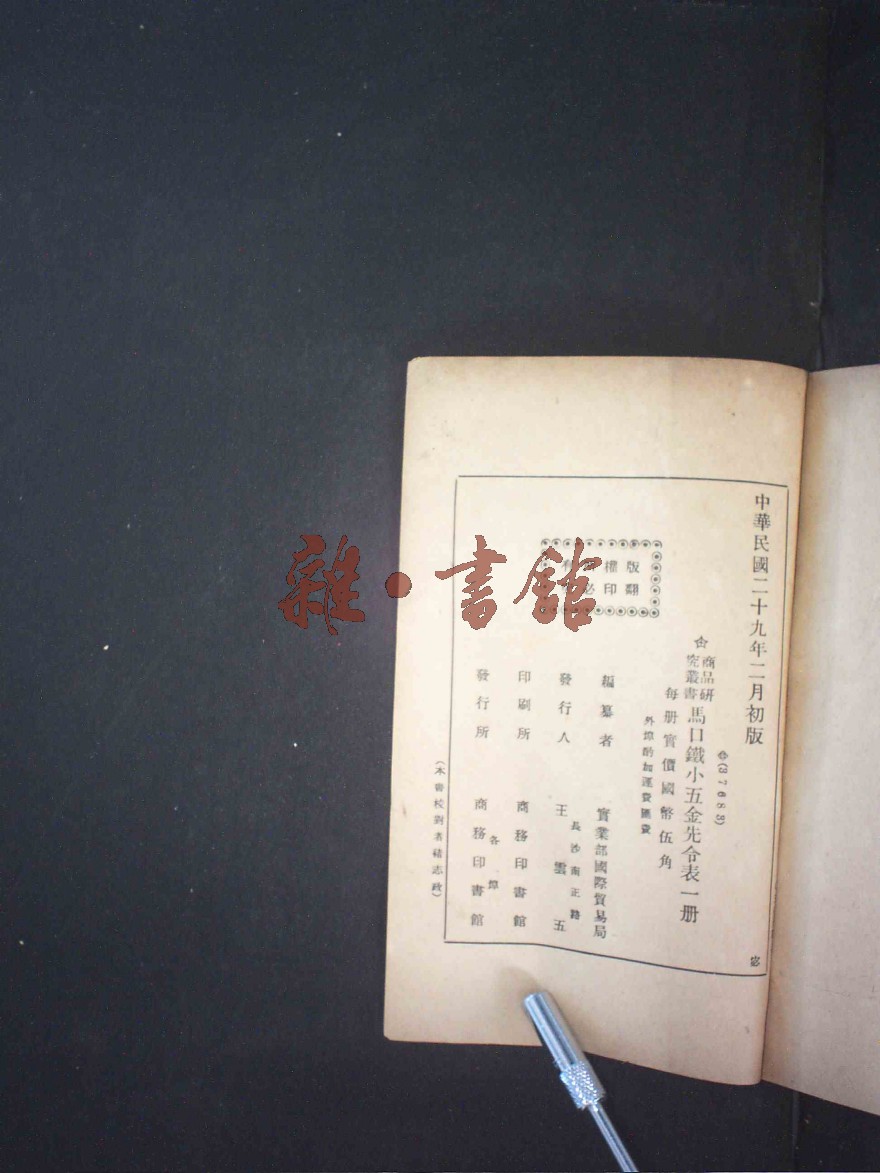 中華民國二十九年二月初版
(37683)
商品研
究叢書
馬口鐵小五金先令表一册
每册實價國幣伍角
外埠酌加運費匯費
版權
翻印必
編纂者 實業部國際貿易局
發行人 王雲五
長沙南正路
印刷所 商務印書館
發行所 商務印書館
各埠
(本書校對者 志政)
雜·書館